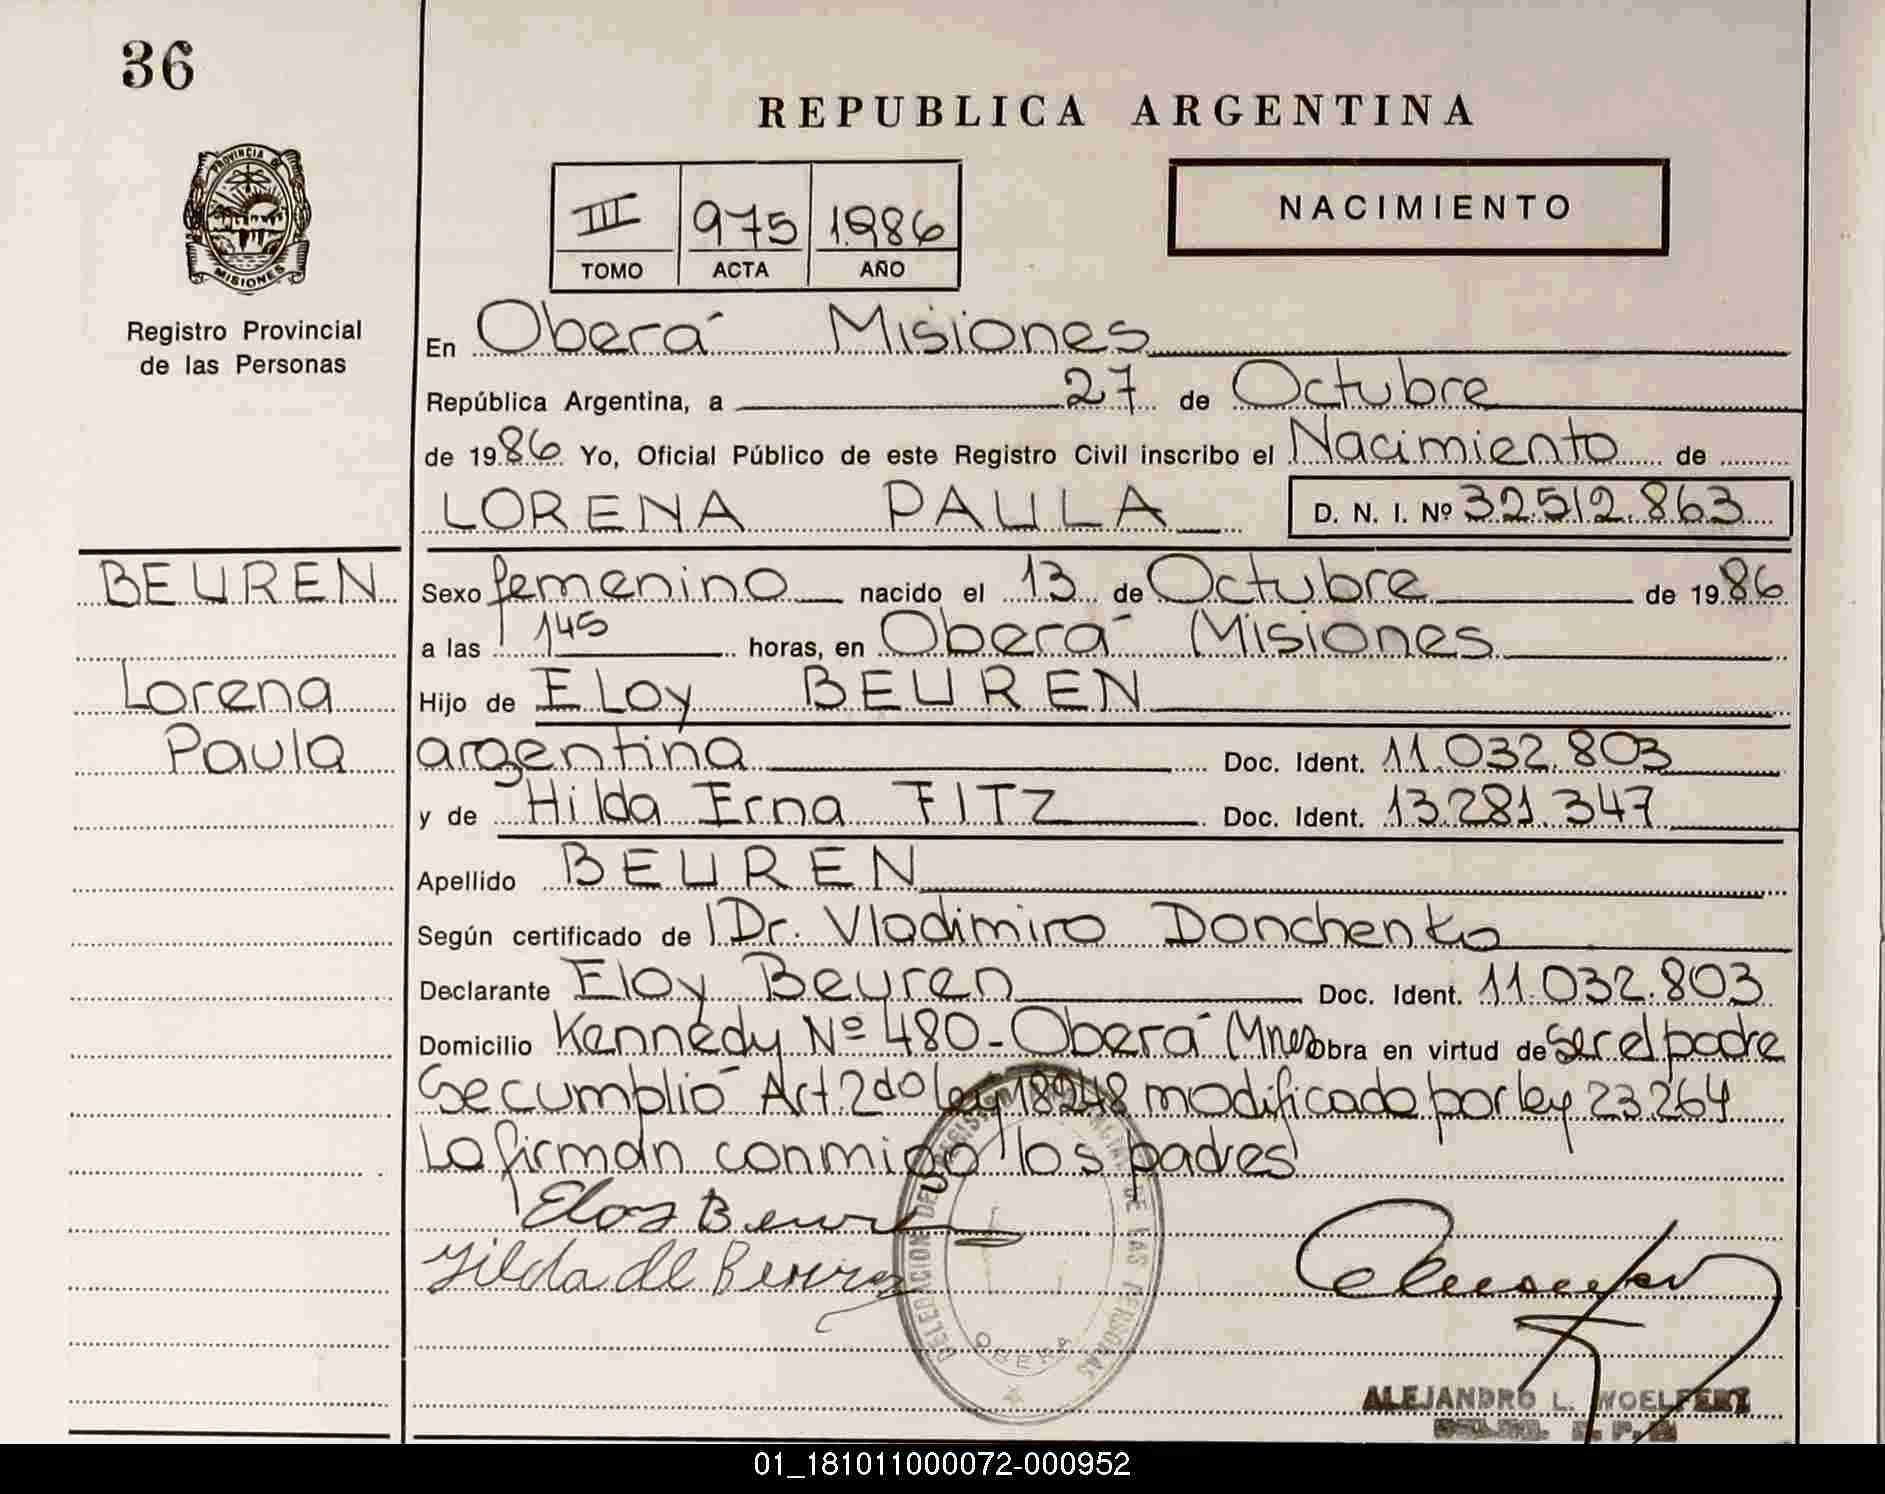 36
REPUBLICA ARGENTINA
PROVINCIA DE
MISIONES
Registro Provincial
de las Personas
III 975 1986
TOMO ACTA AÑO
NACIMIENTO
En Oberá Misiones
República Argentina, a 27 de Octubre
de 1986 Yo, Oficial Público de este Registro Civil inscribo el Nacimiento de
LORENA PAULA D. N. I. Nº 32.512.863
BEUREN
Lorena
Paula
Sexo femenino nacido el 13 de Octubre de 1986
a las 145 horas, en Oberá Misiones
Hijo de Eloy BEUREN
argentina Doc. Ident. 11.032.803
y de Hilda Erna FITZ Doc. Ident. 13.281.347
Apellido BEUREN
Según certificado de Dr. Vladimiro Donchenko
Declarante Eloy Beuren Doc. Ident. 11.032.803
Domicilio Kennedy Nº 480 - Oberá Mnes Obra en virtud de ser el padre
Se cumplió Art. 2do ley 18248 modificado por ley 23.264
La firman conmigo los padres
Eloy Beuren
Hilda de Beuren
DELEGACION DEL REGISTRO PROVINCIAL DE LAS PERSONAS
OBERA
ALEJANDRO L. WOELFERT
01_181011000072-000952